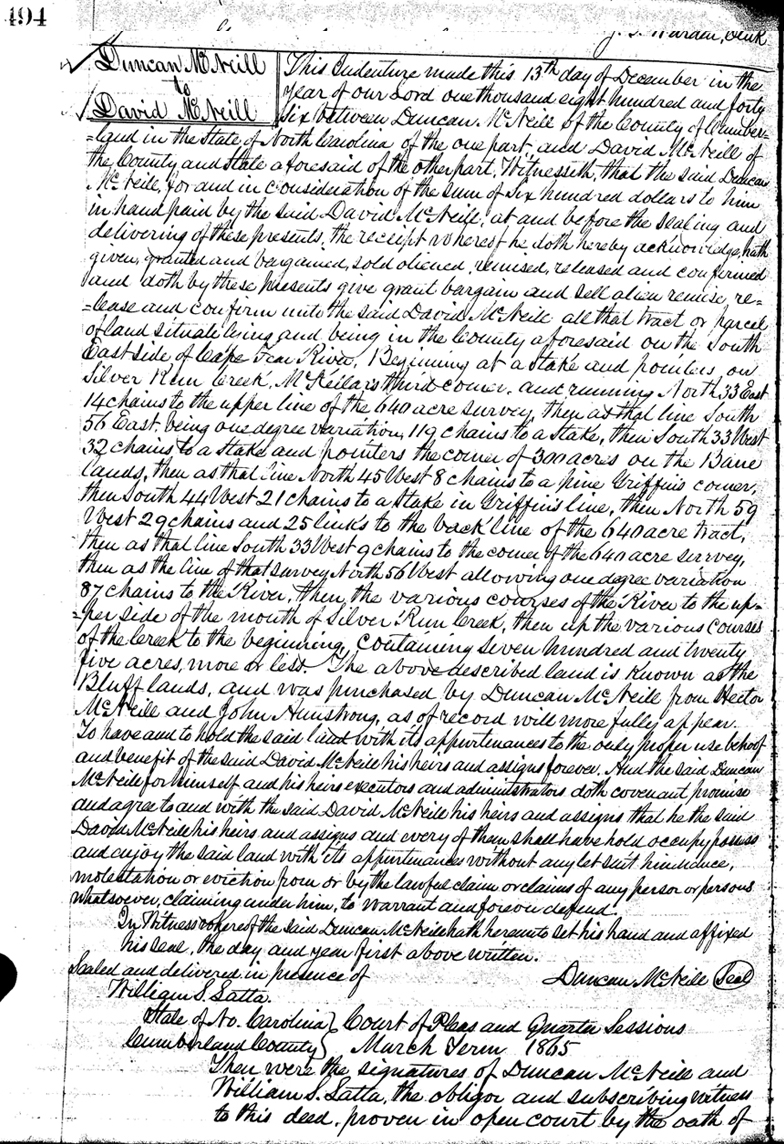 494
J. S. Warden, Clerk
Duncan McNeill
to
David McNeill
This Indenture made this 13th day of December in the
year of our Lord one thousand eight hundred and forty
Six between Duncan McNeill of the County of Cumber-
=land in the State of North Carolina of the one part, and David McNeill of
the County and State aforesaid of the other part, Witnesseth, that the said Duncan
McNeill, for and in consideration of the sum of Six hundred dollars to him
in hand paid by the said David McNeill, at and before the sealing and
delivering of these presents, the receipt whereof he doth hereby acknowledge, hath
given, granted and bargained, sold aliened, remised, released and confirmed
and doth by these presents give grant bargain and sell alien remise, re-
=lease and confirm unto the said David McNeill all that tract or parcel
of land situate lying and being in the County aforesaid on the South
East side of Cape Fear River, Beginning at a stake and pointers on
Silver Run Creek, McKeilars third corner, and running North 33 East
14 chains to the upper line of the 640 acre survey, then as that line South
56 East being one degree variation, 119 chains to a stake, then South 33 West
32 chains to a stake and pointers the corner of 300 acres on the Bane
lands, then as that line North 45 West 8 chains to a pine Griffin's corner,
then South 44 West 21 chains to a stake in Griffin's line, then North 59
West 29 chains and 25 links to the back line of the 640 acre tract,
then as that line South 33 West 9 chains to the corner of the 640 acre survey,
then as the line of that survey North 56 West allowing one degree variation
87 chains to the River, then the various courses of the River to the up-
=per side of the mouth of Silver Run Creek, then up the various courses
of the Creek to the beginning, containing seven hundred and twenty
five acres, more or less. The above described land is known as the
Bluff lands, and was purchased by Duncan McNeill from Hector
McNeill and John Armstrong, as of record will more fully appear.
To have and to hold the said land with its appurtenances to the only proper use behoof
and benefit of the said David McNeill his heirs and assigns forever. And the said Duncan
McNeill for himself and his heirs executors and administrators doth covenant promise
and agree to and with the said David McNeill his heirs and assigns that he the said
David McNeill his heirs and assigns and every of them shall have hold occupy possess
and enjoy the said land with its appurtenances without any let suit hindrance,
molestation or eviction from or by the lawful claim or claims of any person or persons
whatsoever, claiming under him, to warrant and forever defend.
In Witness whereof the said Duncan McNeill hath hereunto set his hand and affixed
his seal, the day and year first above written.
Sealed and delivered in presence of Duncan McNeill Seal
William S. Latta.
State of No. Carolina } Court of Pleas and Quarter Sessions
Cumberland County } March Term 1865
Then were the signatures of Duncan McNeill and
William S. Latta, the obligor and subscribing witness
to this deed, proven in open court by the oath of